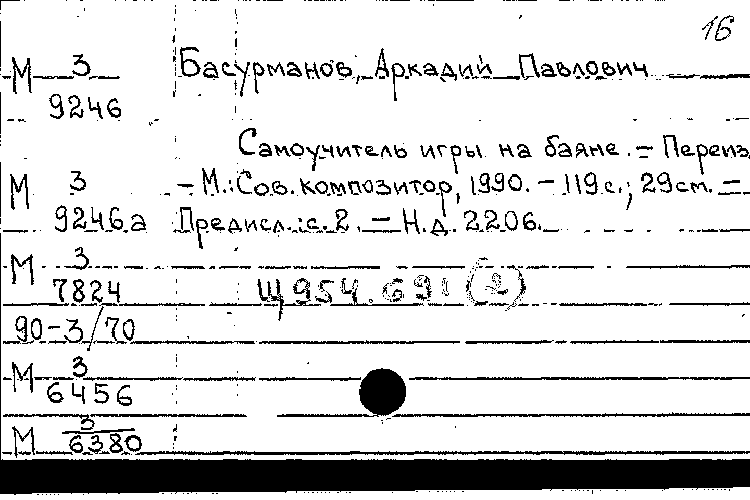 16
М 3/9246 Басурманов, Аркадий Павлович
Самоучитель игры на баяне. – Переиз
М 3/9246а – М.: Сов. композитор, 1990. – 119 с.; 29 см. –
Предисл.: с. 2. – Н.д. 2206.
М 3/7824 Щ954.691(2)
90-3/70
М 3/6456
М 3/6380